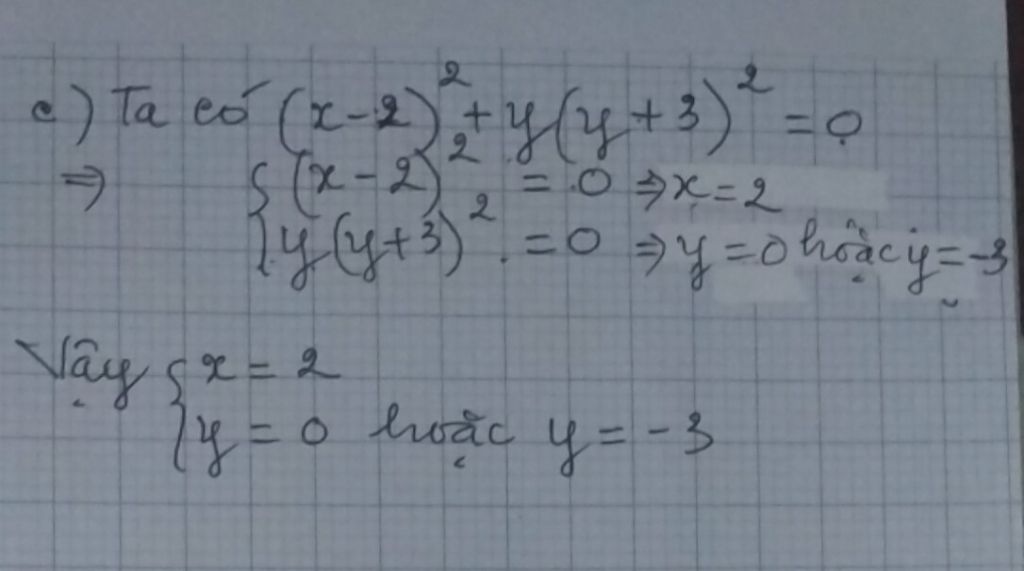 c) Ta có (x-2)² + y(y+3)² = 0
⇒ { (x-2)² = 0 ⇒ x = 2
{ y(y+3)² = 0 ⇒ y = 0 hoặc y = -3
Vậy { x = 2
{ y = 0 hoặc y = -3